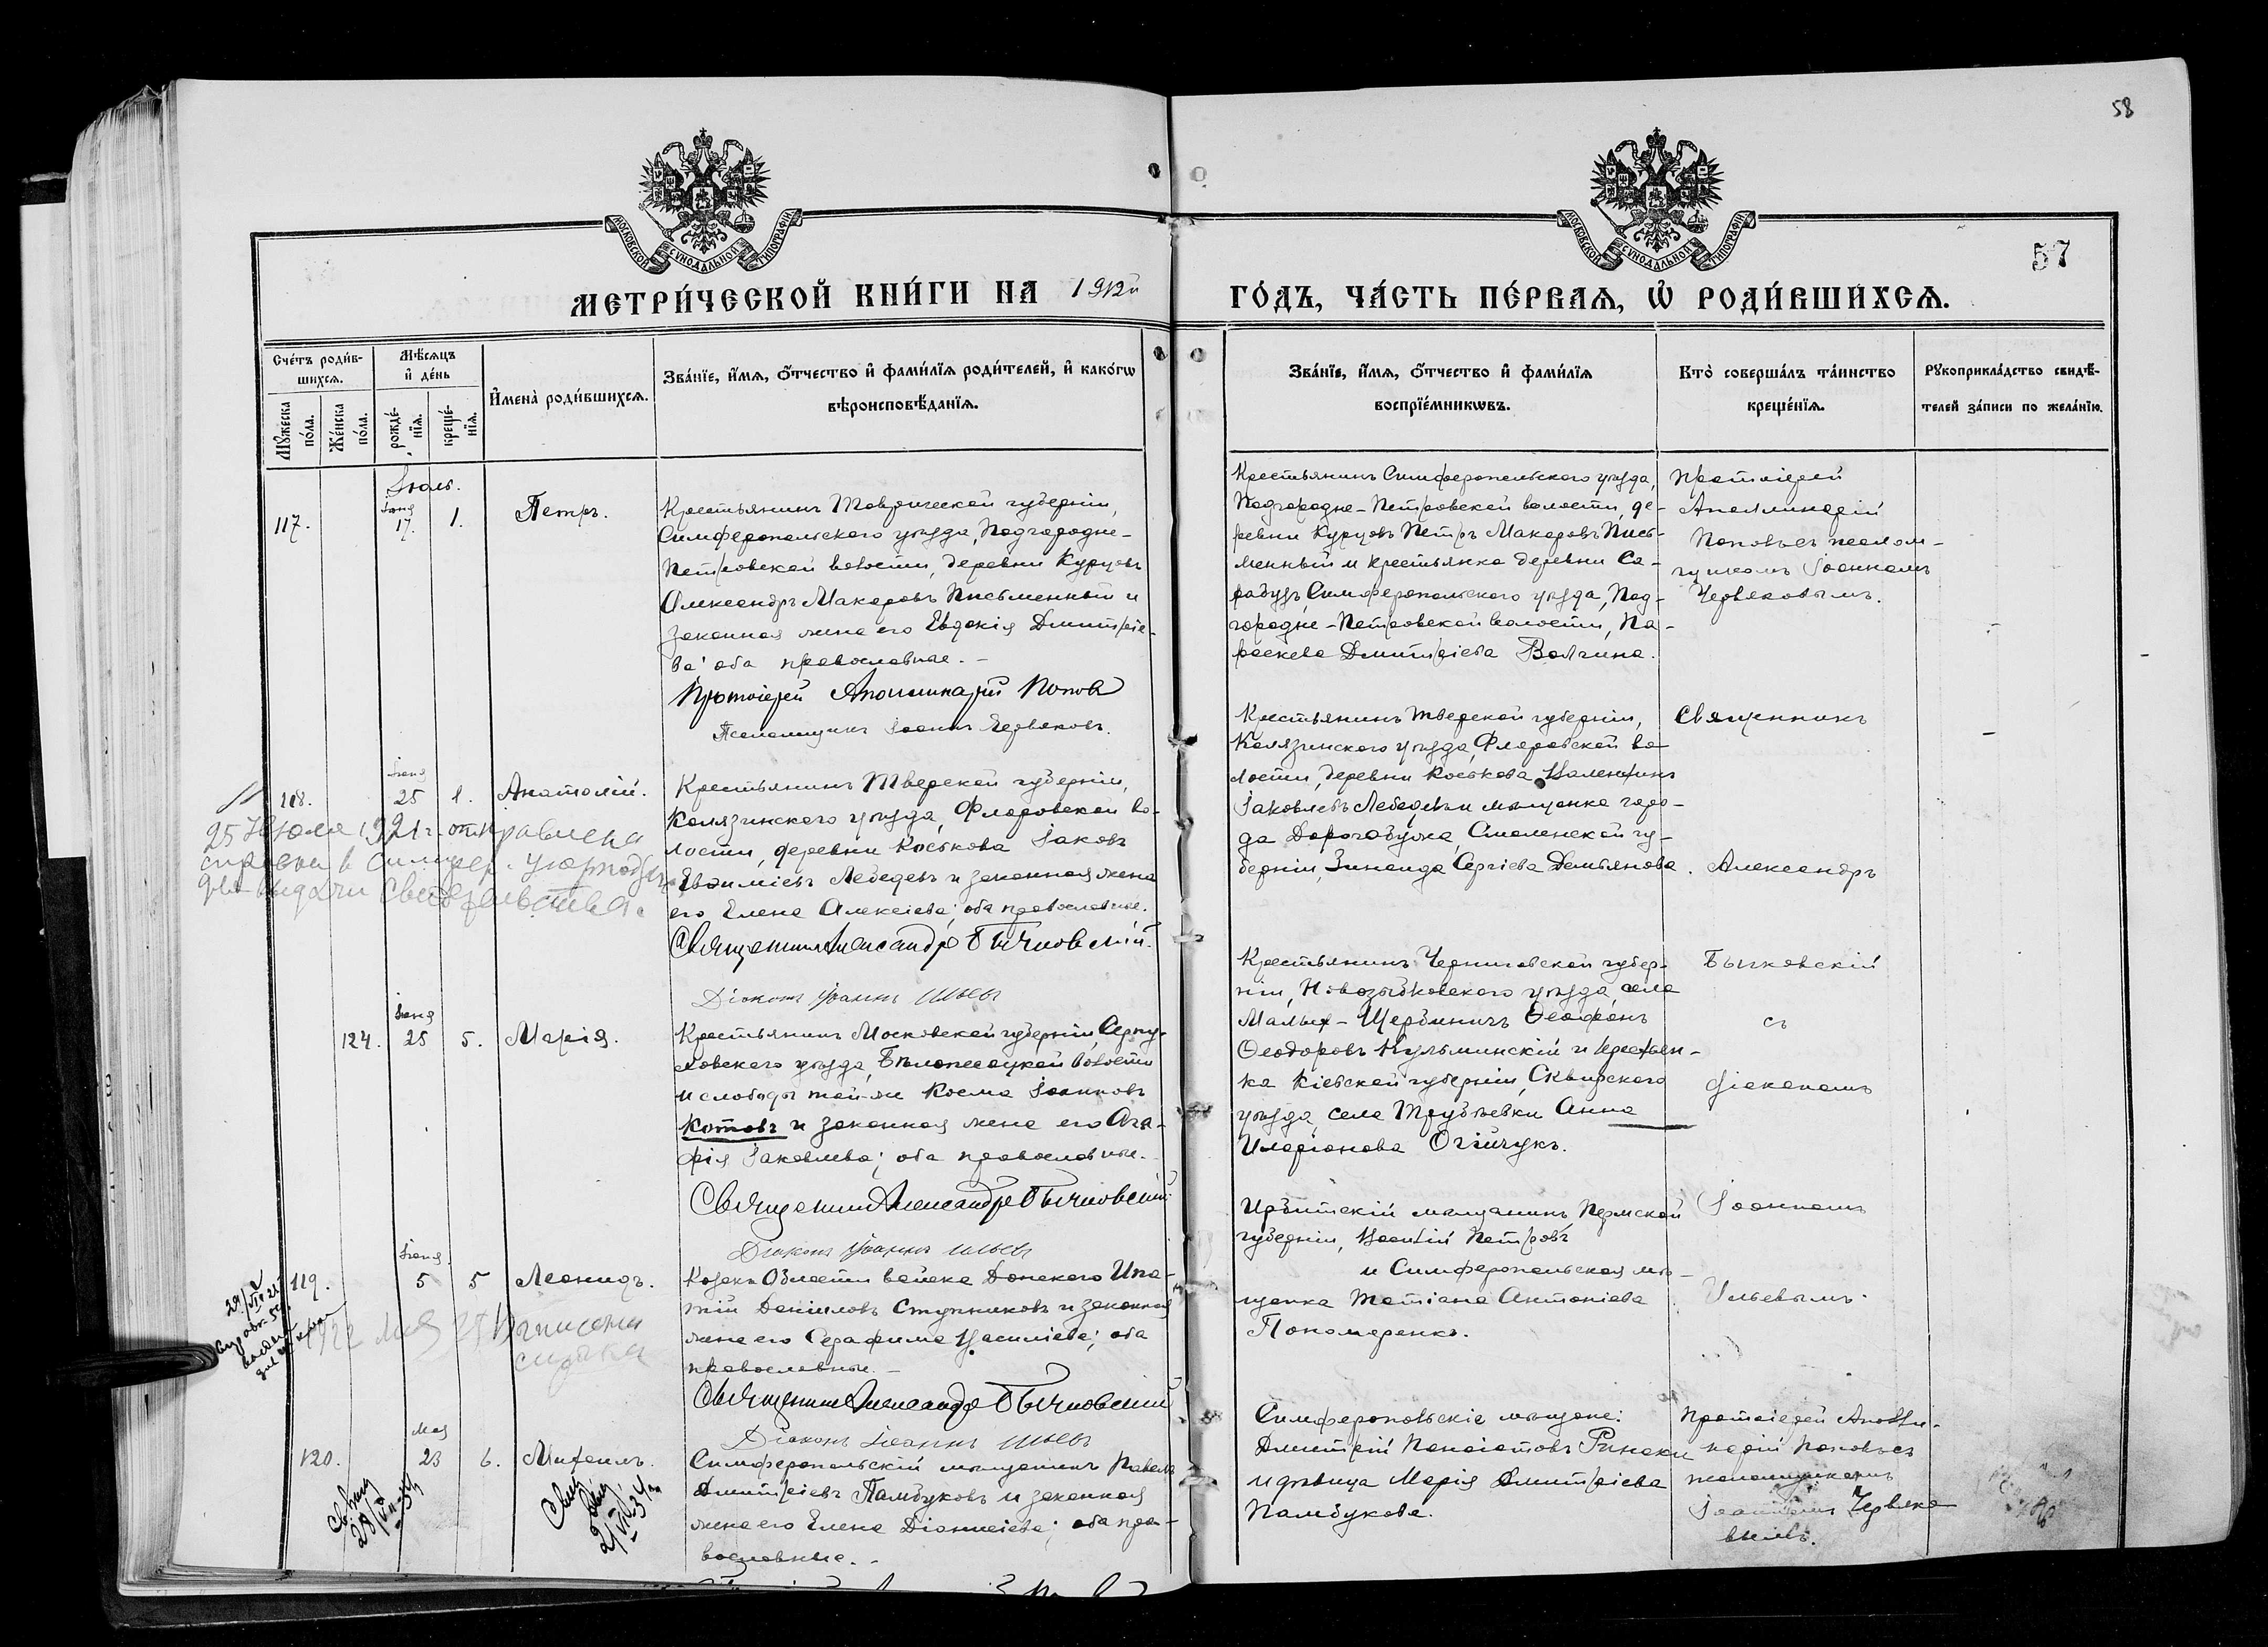 58
57
МОСКОВСКОЙ СѴНОДАЛЬНОЙ ТИПОГРАФІИ
МОСКОВСКОЙ СѴНОДАЛЬНОЙ ТИПОГРАФІИ
МЕТРИ́ЧЕСКОЙ КНИ́ГИ НА 1912й
ГО́ДЪ, ЧА́СТЬ ПЕ́РВАѦ, Ѡ҆ РОДИ́ВШИХСѦ.
Сче́тъ роди́в-
шихсѧ.
Мꙋ́жеска по́ла.
Же́нска по́ла.
Мѣ́сѧцъ
и҆ де́нь
рожде́-
нїѧ.
креще́-
нїѧ.
И҆мена̀ роди́вшихсѧ.
Зва́нїе, и҆́мѧ, ѻ҆́тчество и҆ фами́лїѧ роди́телей, и҆ како́гѡ
вѣроисповѣ́данїѧ.
Зва́нїе, и҆́мѧ, ѻ҆́тчество и҆ фами́лїѧ
воспрїе́мникѡвъ.
Кто̀ соверша́лъ та́инство
креще́нїѧ.
Рꙋкоприкла́дство свидѣ́-
телей за́писи по жела́нїю.
Іюль.
117.
Іюня
17.
1.
Петръ.
Крестьянинъ Таврической губерніи,
Симферопольского уѣзда, Подгородне-
Петровской волости, деревни Курцовъ
Александръ Макаровъ Письменный и
законная жена его Евдокія Дмитріе-
ва; оба православные.-
Протоіерей Аполлинарій Поповъ
Псаломщикъ Іоаннъ Червяковъ.
Крестьянинъ Симферопольского уѣзда,
Подгородне-Петровской волости, де-
ревни Курцовъ Петръ Макаровъ Пись-
менный и крестьянка деревни Са-
рабузъ, Симферопольского уѣзда, Под-
городне-Петровской волости, Па-
раскева Дмитріева Волгина.
Протоіерей
Аполлинарій
Поповъ съ псалом-
щикомъ Іоанномъ
Червяковымъ.
118.
Іюня
25
1.
Анатолій.
25 Июля 1921 г. отправлена
справка в Симфер.
для выдачи свидетельства.
Крестьянинъ Тверской губерніи,
Калязинского уѣзда, Флоровской во-
лости, деревни Коськова Іаковъ
Евѳиміевъ Лебедевъ и законная жена
его Елена Алексіева; оба православные.
Священникъ Александръ Бычковскій.
Діаконъ Іоаннъ Ильевъ
Крестьянинъ Тверской губерніи,
Калязинского уѣзда, Флоровской во-
лости, деревни Коськова Валентинъ
Іаковлевъ Лебедевъ и мѣщанка горо-
да Дорогобужа, Смоленской гу-
берніи, Зинаида Сергіева Демьянова.
Священникъ
Александръ
Бычковскій
съ
діакономъ
Іоанномъ
Ильевымъ.
124.
Іюня
25
5.
Марія.
Крестьянинъ Московской губерніи, Серпу-
ховского уѣзда, Бѣлопесоцкой волости
и слободы той-же Косма Іоанновъ
Котовъ и законная жена его Ага-
фія Іаковлева; оба православные.
Священникъ Александръ Бычковскій.
Діаконъ Іоаннъ Ильевъ
Крестьянинъ Черниговской губер-
ніи, Новозыбковского уѣзда, села
Малыхъ-Щербиничъ Ѳеофанъ
Ѳеодоровъ Кульминскій и крестьян-
ка Кіевской губерніи, Сквирского
уѣзда, села Трубѣевки Анна
Иларіонова Огійчукъ.
119.
Іюня
5
5
Леонидъ.
1922 мая 25 выписана
справка
Козакъ Области войска Донского Ипа-
тій Даніиловъ Ступниковъ и законная
жена его Серафима Василіева; оба
православные.-
Священникъ Александръ Бычковскій
Діаконъ Іоаннъ Ильевъ
Ирбитскій мѣщанинъ, Пермской
губерніи, Василій Петровъ
и Симферопольская мѣ-
щанка Татіана Антоніева
Пономаренко.
120.
Мая
23
6.
Михаилъ.
Симферопольскій мѣщанинъ Павелъ
Дмитріевъ Памбуковъ и законная
жена его Елена Діонисіева; оба пра-
вославные.-
Симферопольскіе мѣщане:
Дмитрій Панаіотовъ Ринеки
и дѣвица Марія Дмитріева
Памбукова.
Протоіерей Аполли-
нарій Поповъ съ
псаломщикомъ
Іоанномъ Червяко-
вымъ.